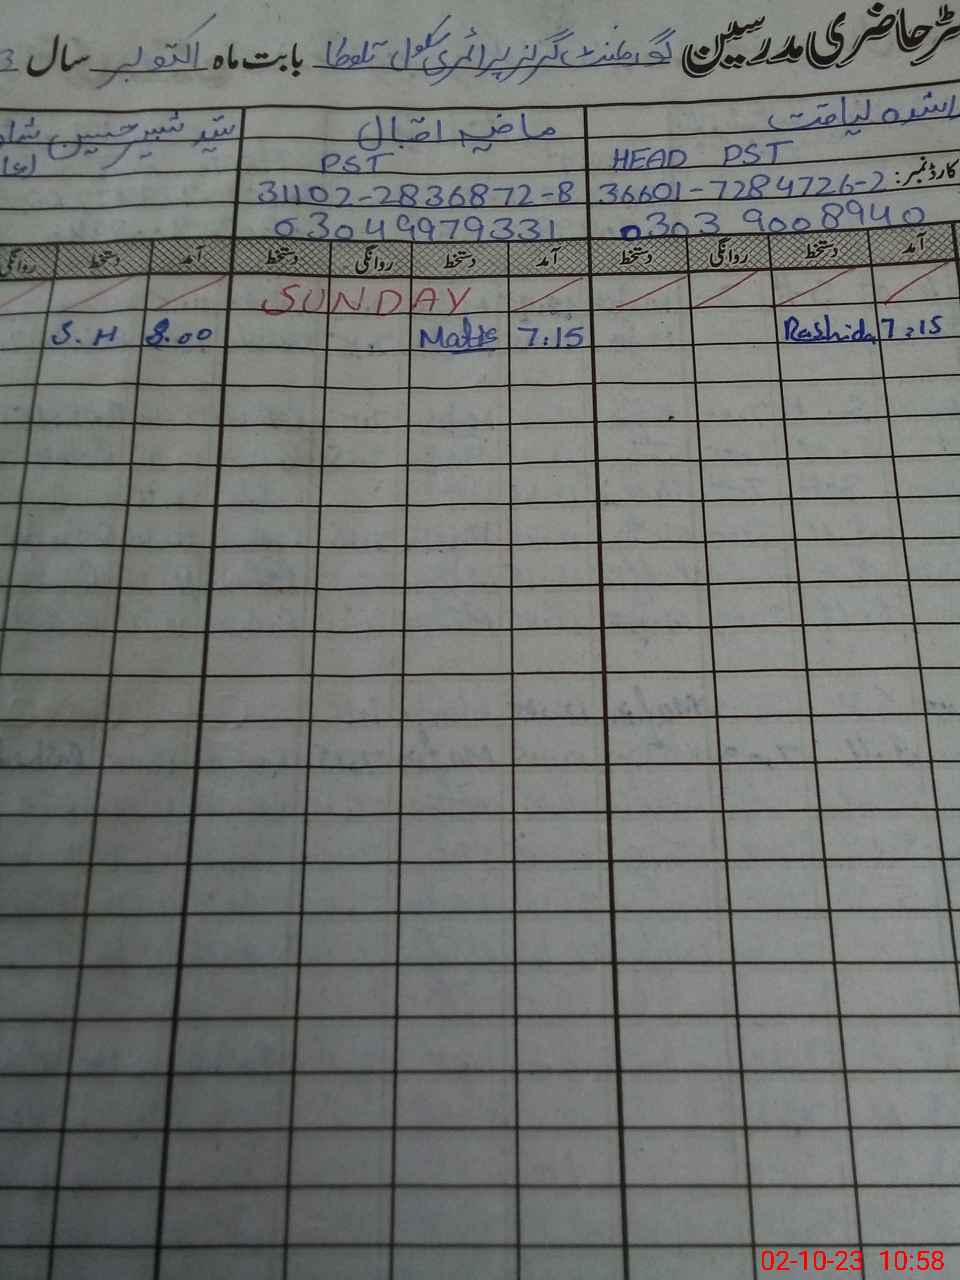 حاضری مدرسین گورنمنٹ گرلز پرائمری سکول بابت ماہ اکتوبر سال 3
راشدہ لیاقت
HEAD PST
کارڈ نمبر: 36601-7284726-2
0303 9008940
ماضیہ اقبال
PST
31102-2836872-8
03049979331
سید شبیر حسین
آمد دستخط روانگی دستخط آمد دستخط روانگی دستخط آمد دستخط روانگی
SUNDAY
7:15 Rashida 7:15 8.00 S.H
02-10-23 10:58